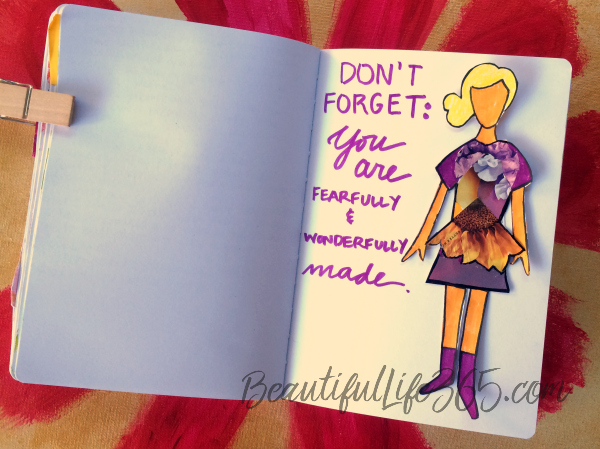 DON'T
FORGET:
You
are
FEARFULLY
&
WONDERFULLY
made.
BeautifulLife365.com